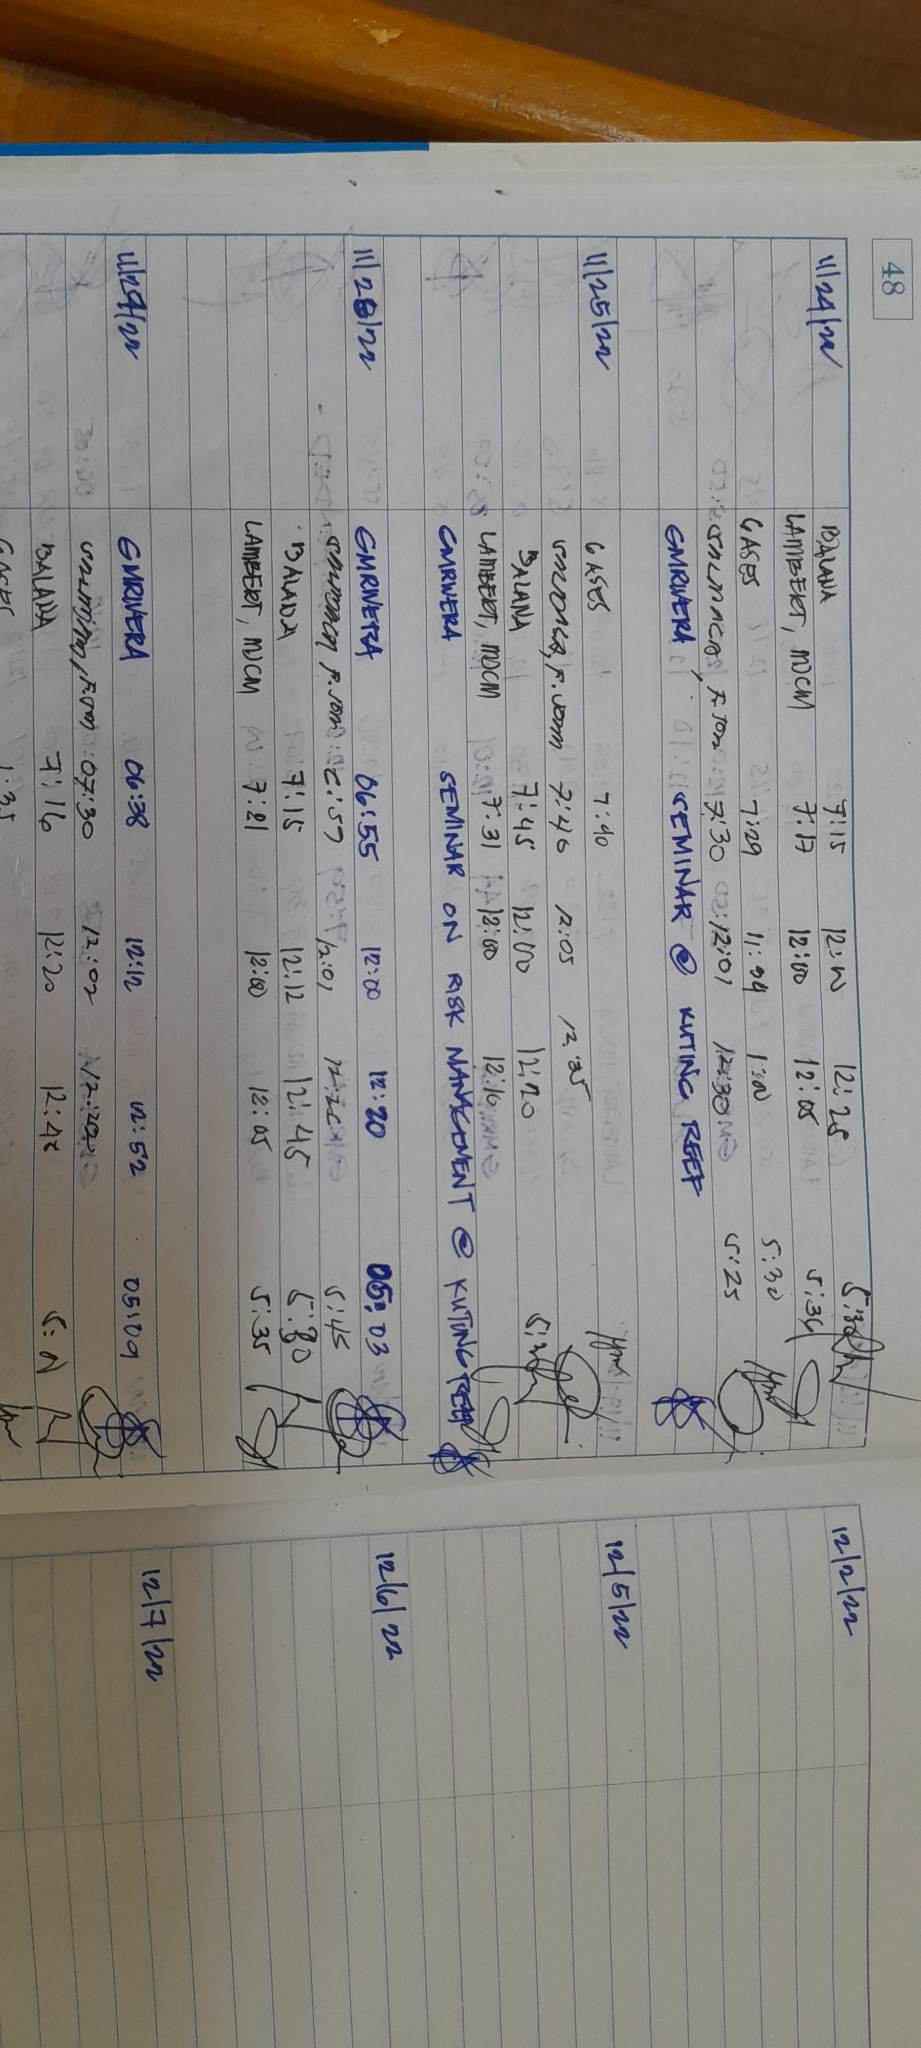 48
11/24/22 BALANA 7:15 12:10 12:25 5:30
LAMBERT, MDCM 7:17 12:00 12:05 5:34
GASES 7:29 11:29 1:00 5:30
7:30 12:01 12:30 5:25
GMRIVERA SEMINAR @ KUTING REEF
11/25/22 GASES 7:40
7:40 12:05 12:35
BALANA 7:45 12:00 12:20
LAMBERT, MDCM 7:31 12:00 12:10
GMRIVERA SEMINAR ON RISK MANAGEMENT @ KUTING REEF
11/28/22 GMRIVERA 06:55 12:00 12:20 05:03
12:01 5:45
BALANA 7:15 12:12 12:45 5:30
LAMBERT, MDCM 7:21 12:00 12:05 5:35
11/29/22 GMRIVERA 06:38 12:12 12:52 05:09
07:30 12:02
BALANA 7:16 12:20 12:42
GASES
12/2/22
12/5/22
12/6/22
12/7/22